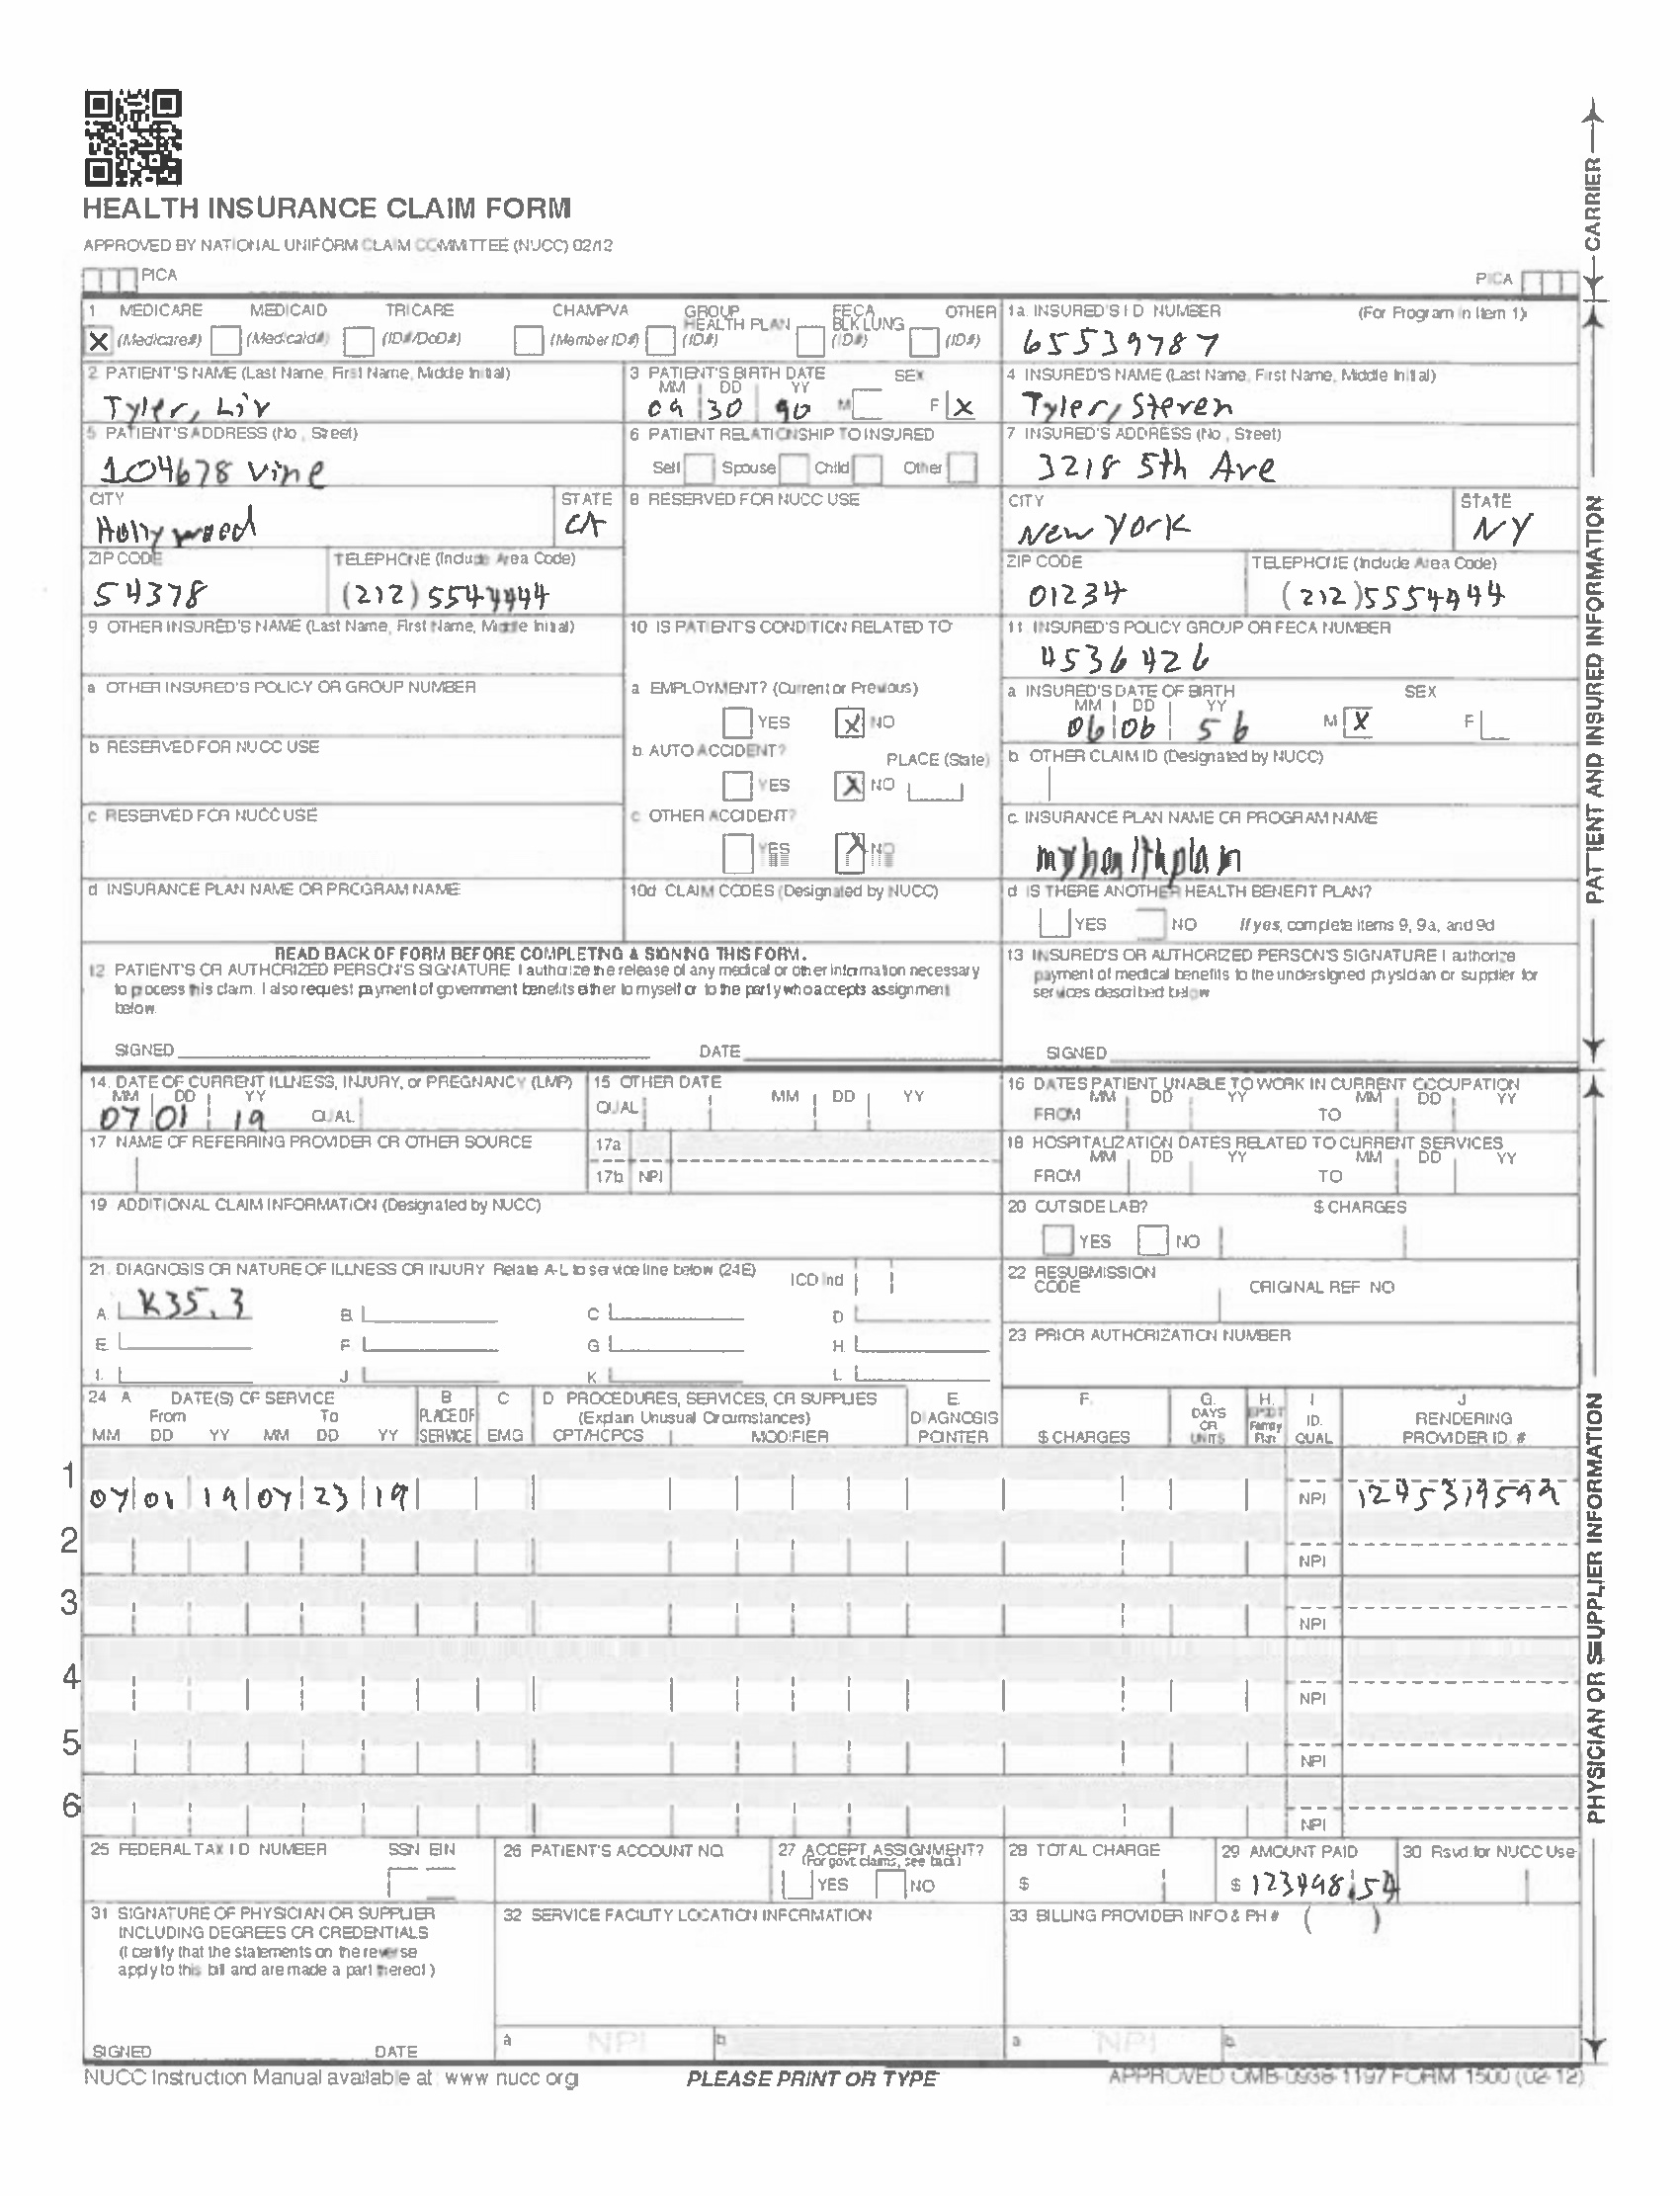 HEALTH INSURANCE CLAIM FORM
APPROVED BY NATIONAL UNIFORM CLAIM COMMITTEE (NUCC) 02/12
PICA PICA
CARRIER
1 MEDICARE MEDICAID TRICARE CHAMPVA GROUP HEALTH PLAN FECA BLK LUNG OTHER
X (Medicare#) (Medicaid#) (ID#/DoD#) (Member ID#) (ID#) (ID#) (ID#)
1a. INSURED'S I D NUMBER (For Program in Item 1)
65539787
2 PATIENT'S NAME (Last Name, First Name, Middle Initial)
Tyler, Liv
3 PATIENT'S BIRTH DATE SEX
MM DD YY
09 30 90 M F X
4 INSURED'S NAME (Last Name, First Name, Middle Initial)
Tyler, Steven
5 PATIENT'S ADDRESS (No, Street)
104678 Vine
6 PATIENT RELATIONSHIP TO INSURED
Self Spouse Child Other
7 INSURED'S ADDRESS (No, Street)
3218 5th Ave
CITY STATE
Hollywood CA
8 RESERVED FOR NUCC USE
CITY STATE
New York NY
ZIP CODE TELEPHONE (Include Area Code)
54378 (212) 5544444
ZIP CODE TELEPHONE (Include Area Code)
01234 (212) 5554444
9 OTHER INSURED'S NAME (Last Name, First Name, Middle Initial)
a OTHER INSURED'S POLICY OR GROUP NUMBER
b RESERVED FOR NUCC USE
c RESERVED FOR NUCC USE
d INSURANCE PLAN NAME OR PROGRAM NAME
10 IS PATIENT'S CONDITION RELATED TO
a EMPLOYMENT? (Current or Previous)
YES X NO
b AUTO ACCIDENT? PLACE (State)
YES X NO
c OTHER ACCIDENT?
YES X NO
10d CLAIM CODES (Designated by NUCC)
11. INSURED'S POLICY GROUP OR FECA NUMBER
4536426
a INSURED'S DATE OF BIRTH SEX
MM DD YY
06 06 56 M X F
b. OTHER CLAIM ID (Designated by NUCC)
c. INSURANCE PLAN NAME OR PROGRAM NAME
myhealthplan
d IS THERE ANOTHER HEALTH BENEFIT PLAN?
YES NO If yes, complete items 9, 9a, and 9d
PATIENT AND INSURED INFORMATION
READ BACK OF FORM BEFORE COMPLETING & SIGNING THIS FORM.
12 PATIENT'S OR AUTHORIZED PERSON'S SIGNATURE I authorize the release of any medical or other information necessary
to process this claim. I also request payment of government benefits either to myself or to the party who accepts assignment
below.
SIGNED DATE
13 INSURED'S OR AUTHORIZED PERSON'S SIGNATURE I authorize
payment of medical benefits to the undersigned physician or supplier for
services described below
SIGNED
14. DATE OF CURRENT ILLNESS, INJURY, or PREGNANCY (LMP)
MM DD YY
07 01 19 QUAL
15 OTHER DATE
QUAL MM DD YY
16 DATES PATIENT UNABLE TO WORK IN CURRENT OCCUPATION
MM DD YY MM DD YY
FROM TO
17 NAME OF REFERRING PROVIDER OR OTHER SOURCE
17a
17b NPI
18 HOSPITALIZATION DATES RELATED TO CURRENT SERVICES
MM DD YY MM DD YY
FROM TO
19 ADDITIONAL CLAIM INFORMATION (Designated by NUCC)
20 OUTSIDE LAB? $ CHARGES
YES NO
21. DIAGNOSIS OR NATURE OF ILLNESS OR INJURY Relate A-L to service line below (24E) ICD Ind
A. K35.3 B. C. D.
E. F. G. H.
I. J. K. L.
22 RESUBMISSION CODE ORIGINAL REF NO
23 PRIOR AUTHORIZATION NUMBER
24 A DATE(S) OF SERVICE B C D PROCEDURES, SERVICES, OR SUPPLIES E. F. G. H. I J
From To PLACE OF (Explain Unusual Circumstances) DIAGNOSIS DAYS OR EPSDT Family ID. RENDERING
MM DD YY MM DD YY SERVICE EMG CPT/HCPCS MODIFIER POINTER $ CHARGES UNITS Plan QUAL PROVIDER ID. #
1 07 01 19 07 23 19 NPI
2 NPI
3 NPI
4 NPI
5 NPI
6 NPI
PHYSICIAN OR SUPPLIER INFORMATION
25 FEDERAL TAX I D NUMBER SSN EIN
26 PATIENT'S ACCOUNT NO.
27 ACCEPT ASSIGNMENT?
(For govt. claims, see back)
YES NO
28 TOTAL CHARGE
$
29 AMOUNT PAID
$ 123498.54
30 Rsvd for NUCC Use
31 SIGNATURE OF PHYSICIAN OR SUPPLIER
INCLUDING DEGREES OR CREDENTIALS
(I certify that the statements on the reverse
apply to this bill and are made a part thereof)
SIGNED DATE
32 SERVICE FACILITY LOCATION INFORMATION
a NPI b
33 BILLING PROVIDER INFO & PH # ( )
a NPI b
NUCC Instruction Manual available at: www nucc org
PLEASE PRINT OR TYPE
APPROVED OMB-0938-1197 FORM 1500 (02-12)